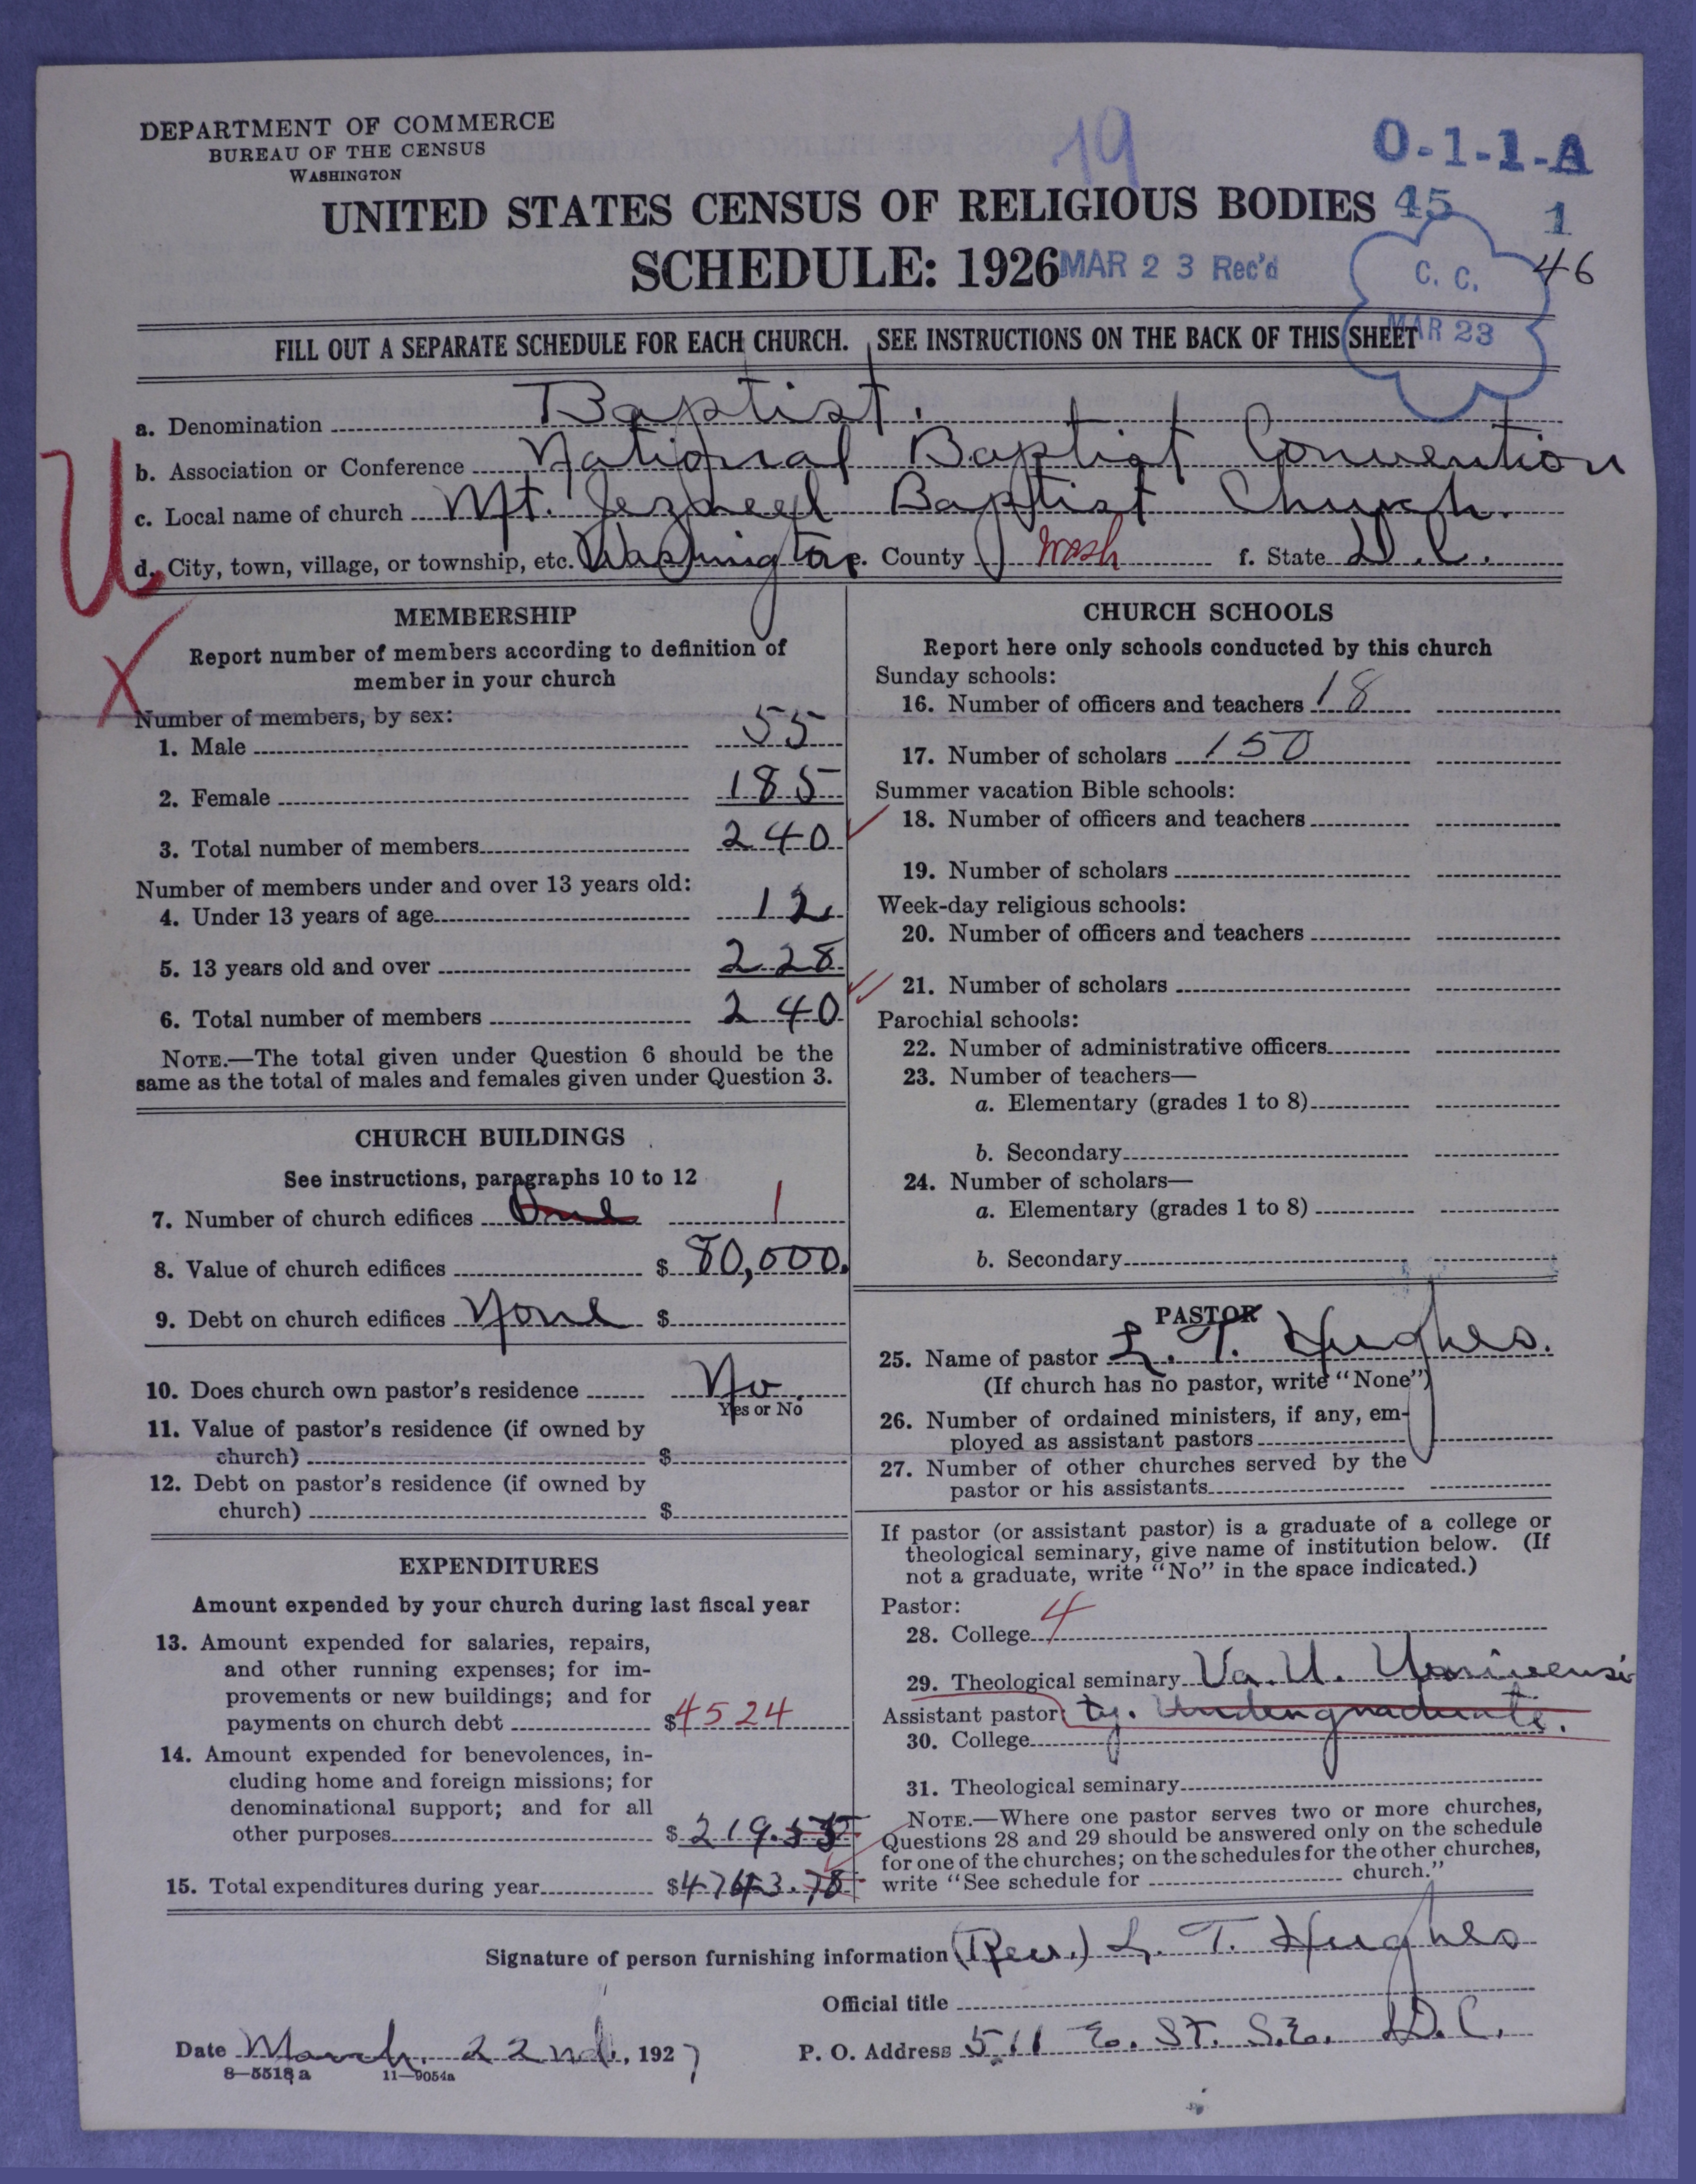 DEPARTMENT OF COMMERCE
BUREAU OF THE CENSUS
WASHINGTON
19
O-1-1-A
UNITED STATES CENSUS OF RELIGIOUS BODIES 45 1
SCHEDULE: 1926 MAR 23 Rec'd
C. C. 46
MAR 23
FILL OUT A SEPARATE SCHEDULE FOR EACH CHURCH. SEE INSTRUCTIONS ON THE BACK OF THIS SHEET
a. Denomination Baptist.
b. Association or Conference National Baptist Convention
c. Local name of church Mt. Jezreel Baptist Church.
d. City, town, village, or township, etc. Washington e. County Wash f. State D.C.
U
X
MEMBERSHIP
Report number of members according to definition of
member in your church
Number of members, by sex:
1. Male 55
2. Female 185
3. Total number of members 240
Number of members under and over 13 years old:
4. Under 13 years of age 12
5. 13 years old and over 228
6. Total number of members 240
NOTE.—The total given under Question 6 should be the
same as the total of males and females given under Question 3.
CHURCH BUILDINGS
See instructions, paragraphs 10 to 12
7. Number of church edifices One 1
8. Value of church edifices $ 80,000.
9. Debt on church edifices None $
10. Does church own pastor's residence No.
Yes or No
11. Value of pastor's residence (if owned by
church) $
12. Debt on pastor's residence (if owned by
church) $
EXPENDITURES
Amount expended by your church during last fiscal year
13. Amount expended for salaries, repairs,
and other running expenses; for im-
provements or new buildings; and for
payments on church debt $4524
14. Amount expended for benevolences, in-
cluding home and foreign missions; for
denominational support; and for all
other purposes $ 219.
15. Total expenditures during year $4743.78
CHURCH SCHOOLS
Report here only schools conducted by this church
Sunday schools:
16. Number of officers and teachers 18
17. Number of scholars 150
Summer vacation Bible schools:
18. Number of officers and teachers
19. Number of scholars
Week-day religious schools:
20. Number of officers and teachers
21. Number of scholars
Parochial schools:
22. Number of administrative officers
23. Number of teachers—
a. Elementary (grades 1 to 8)
b. Secondary
24. Number of scholars—
a. Elementary (grades 1 to 8)
b. Secondary
PASTOR
25. Name of pastor L. T. Hughes.
(If church has no pastor, write "None")
26. Number of ordained ministers, if any, em-
ployed as assistant pastors
27. Number of other churches served by the
pastor or his assistants
If pastor (or assistant pastor) is a graduate of a college or
theological seminary, give name of institution below. (If
not a graduate, write "No" in the space indicated.)
Pastor:
28. College 4
29. Theological seminary Va. U. Universi
Assistant pastor: ty. Undergraduate.
30. College
31. Theological seminary
NOTE.—Where one pastor serves two or more churches,
Questions 28 and 29 should be answered only on the schedule
for one of the churches; on the schedules for the other churches,
write "See schedule for church."
Signature of person furnishing information (Rev.) L. T. Hughes
Official title
Date March 22nd, 1927
P. O. Address 511 E. St. S.E. D.C.
8—5518a 11—9054a